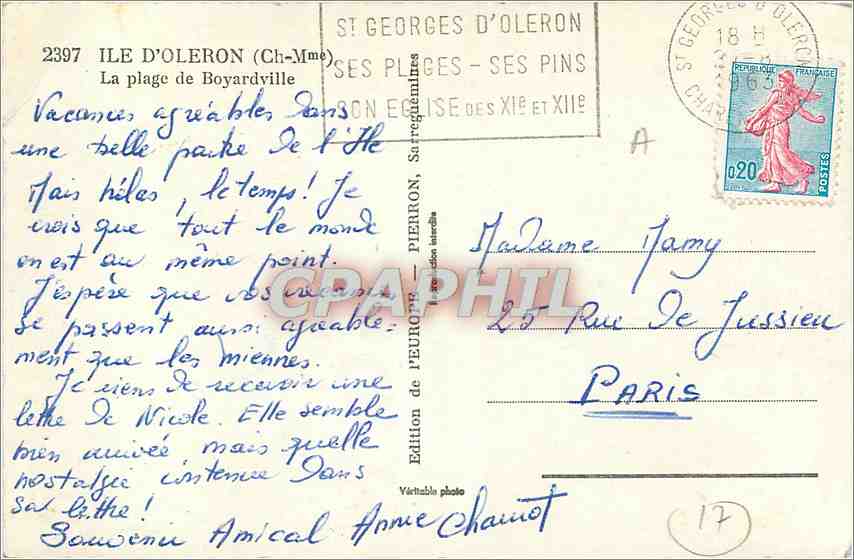 2397 ILE D'OLERON (Ch-Mme)
La plage de Boyardville
Vacances agréables dans
une belle partie de l'Ile
Mais hélas, le temps! Je
crois que tout le monde
en est au même point.
J'espère que vos vacances
se passent aussi agréable=
ment que les miennes.
Je viens de recevoir une
lettre de Nicole. Elle semble
bien arrivée mais quelle
nostalgie contenue dans
sa lettre!
Souvenir Amical Annie Chamot
ST GEORGES D'OLERON
SES PLAGES - SES PINS
SON EGLISE DES XIe ET XIIe
ST GEORGES D'OLERON
18 H
963
CHAR
REPUBLIQUE FRANÇAISE
0,20
POSTES
A
Edition de l'EUROPE — PIERRON, Sarreguemines
Reproduction interdite
CPAPHIL
Madame Mamy
25 Rue de Jussieu
PARIS
Véritable photo
17